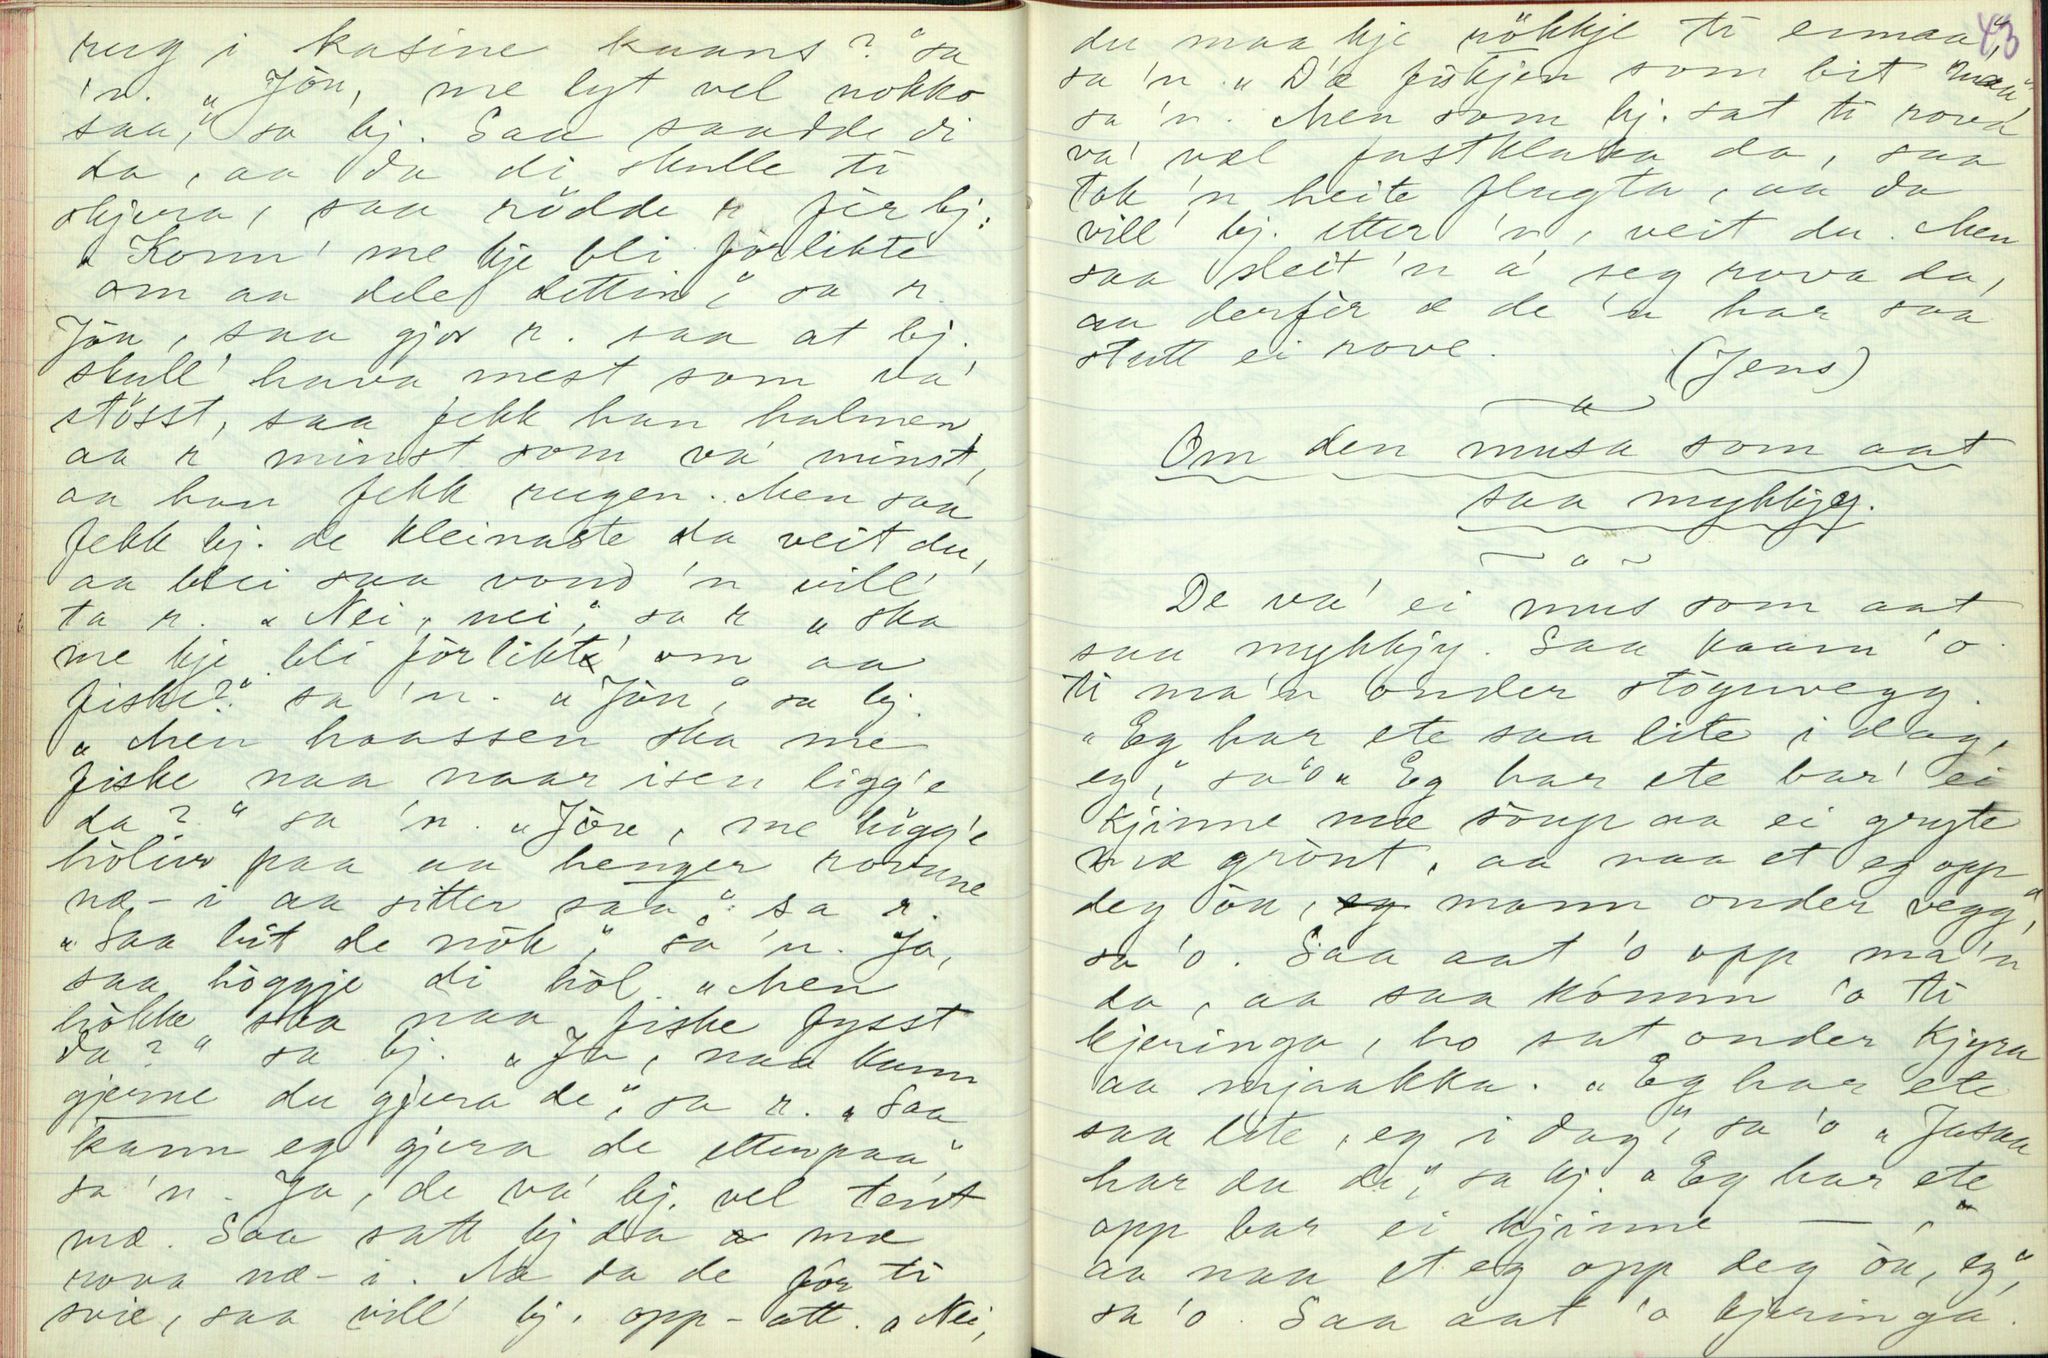 rug i kasine kaans?" sa
'n. "Jôu, me lyt vel nokko
saa," sa bj. Saa saadde di
da, aa da di skulle ti
skjera, saa rödde r fêr bj:
"Konn' me kje bli förlikte
om aa dele dettin," sa r.
Jôu, saa gjor r. saa at bj.
skull' hava mest som va'
stösst, saa fekk han halmen
aa r minst som va' minst,
aa han fekk rugen. Men saa
fekk bj. de kleinaste da veit du,
aa blei saa vond 'n vill'
ta r. "Nei, nei," sa r "ska
me kje bli förlikte om aa
fiske?" sa 'n. "Jôu," sa bj.
"Men haassen ska me
fiske naa naar isen ligg'e
da?" sa 'n. "Jôu, me högg'e
höliur paa aa henger rovune
næ-i aa sitter saa," sa r.
"Saa bit de nök," sa 'n. Ja,
saa höggje di höl. "Men
hökke ska naa fiske fysst
da?" sa bj. "Ja, naa kann
gjerne du gjera de", sa r. "Saa
kann eg gjera de etterpaa,"
sa 'n. Ja, de va' bj. vel tent
mæ. Saa satt bj da mæ
rova næ-i. Na da de fôr ti
svie, saa vill' bj. opp-att. "Nei,
du maa kje rökkje ti eimaa,"
43
sa 'n. "D'æ fiskjen som bit naa,"
sa 'n. Men som bj. sat ti rova
va' væl fastklaka da, saa
tok 'n heite flugta, aa da
vill' bj. etter 'n, veit du. Men
saa sleit 'n a' seg rova da,
aa derfêr æ de 'n har saa
stutt ei rove.
(Jens)
Om den musa som aat
saa mykkjy.
De va' ei mus som aat
saa mykkjy. Saa kaam 'o
ti ma'n onder stöguvegg.
"Eg har ete saa lite i dag,
eg," sa 'o "Eg har ete bar' ei
kjinne mæ sôup aa ei gryte
mæ grönt, aa naa et eg opp
deg ôu, mann onder vegg",
sa 'o. Saa aat 'o opp ma'n
da, aa saa kômm 'o ti
kjeringa, ho sat onder kjyra
aa mjaakka. "Eg har ete
saa lite, eg i dag," sa 'o "Jasaa
har du de," sa kj. "Eg har ete
opp bar ei kjinne — , "
aa naa et eg opp deg ôu, eg",
sa 'o. Saa aat 'o kjeringa.